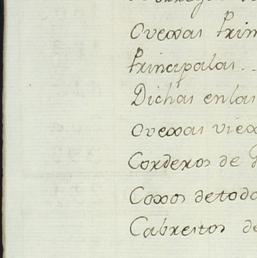 Ovexas Prim
Principalas..
Dichas en las
Ovexas viex
Corderos de
Coxos de todo
Cabreitos de